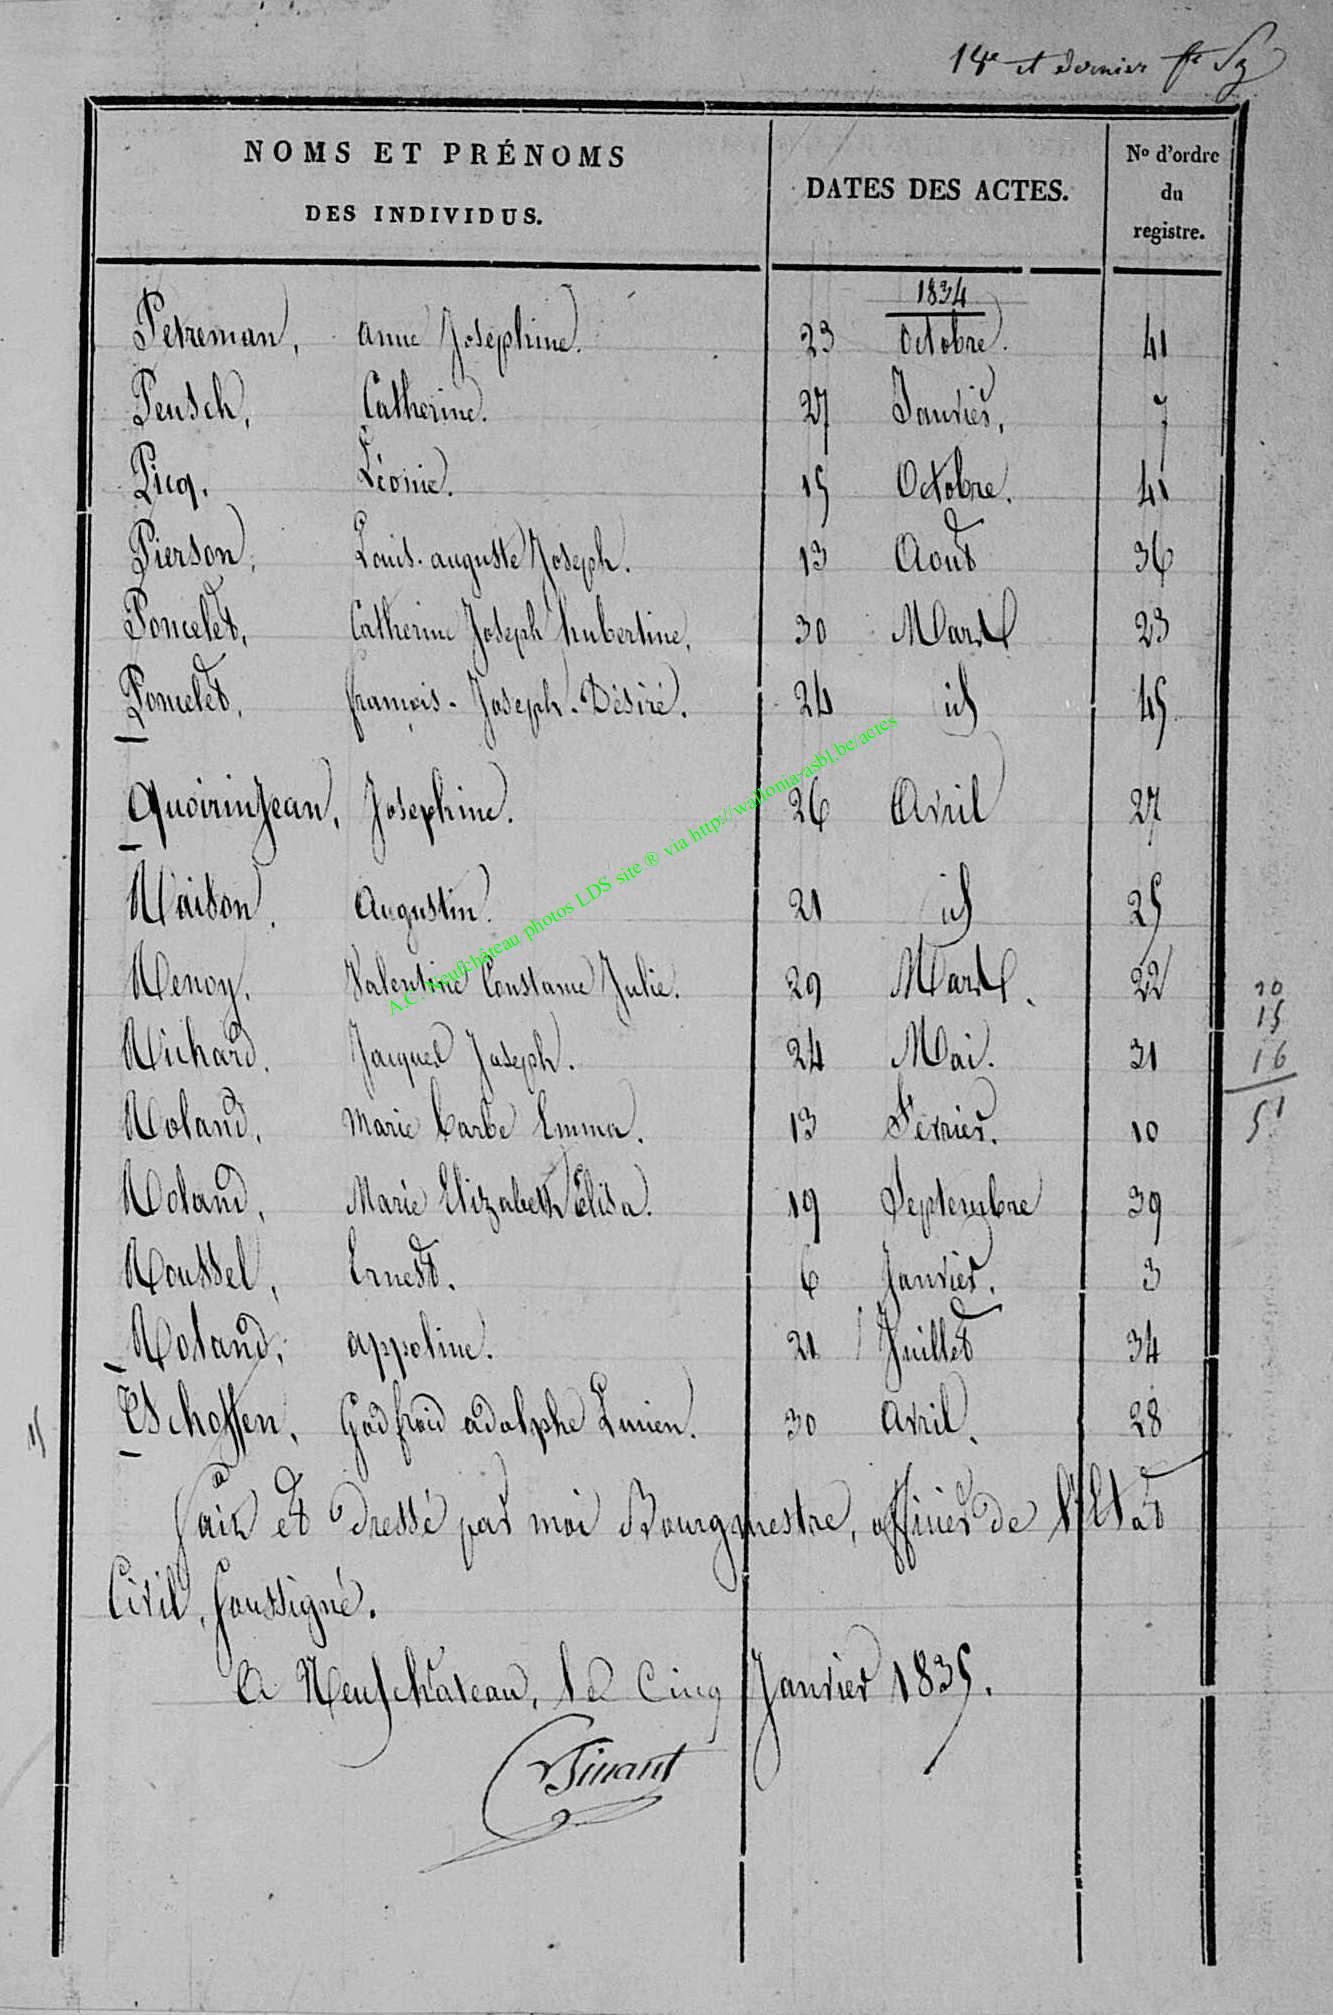 18e et dernier
NOMS ET PRÉNOMS
DES INDIVIDUS.
DATES DES ACTES.
No d'ordre
du
registre.
1834
Petreman, anne Josephine. 23 Octobre. 41
Peusch, Catherine. 27 Janvier, 7
Picq, Léonie. 15 Octobre. 41
Pierson, Louis-auguste Joseph. 13 Aout 36
Poncelet, Catherine Joseph hubertine, 30 Mars 23
Poncelet, françois-Joseph-Désiré. 24 id 45
QuoirinJean, Josephine. 26 Avril 27
Raison, Augustin. 21 id 25
Renoy, Valentine Constance Julie. 29 Mars. 22
Richard, Jacques Joseph. 24 Mai. 31
Roland, Marie barbe Emma. 13 Fevrier. 10
Roland, Marie Elizabeth Elisa. 19 Septembre 39
Roussel, Ernest. 6 Janvier. 3
Roland, appoline. 21 Juillet 34
Tschoffen, Godfroid adolphe Lucien. 30 Avril, 28
20
15
16
51
15
fait et Dressé par moi Bourgmestre, officier de l'Etat
Civil, Soussigné.
A Neufchâteau, le Cinq Janvier 1835.
A.C. Neufchâteau photos LDS site ® via http://wallonia-asbl.be/actes